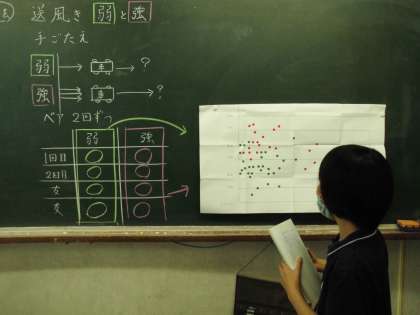 送風き 弱 と 強
手ごたえ
弱 → 車 → ?
強 → 車 → ?
ペア 2回ずつ
弱 強
1回目 ○ ○
2回目 ○ ○
○ ○
○ ○